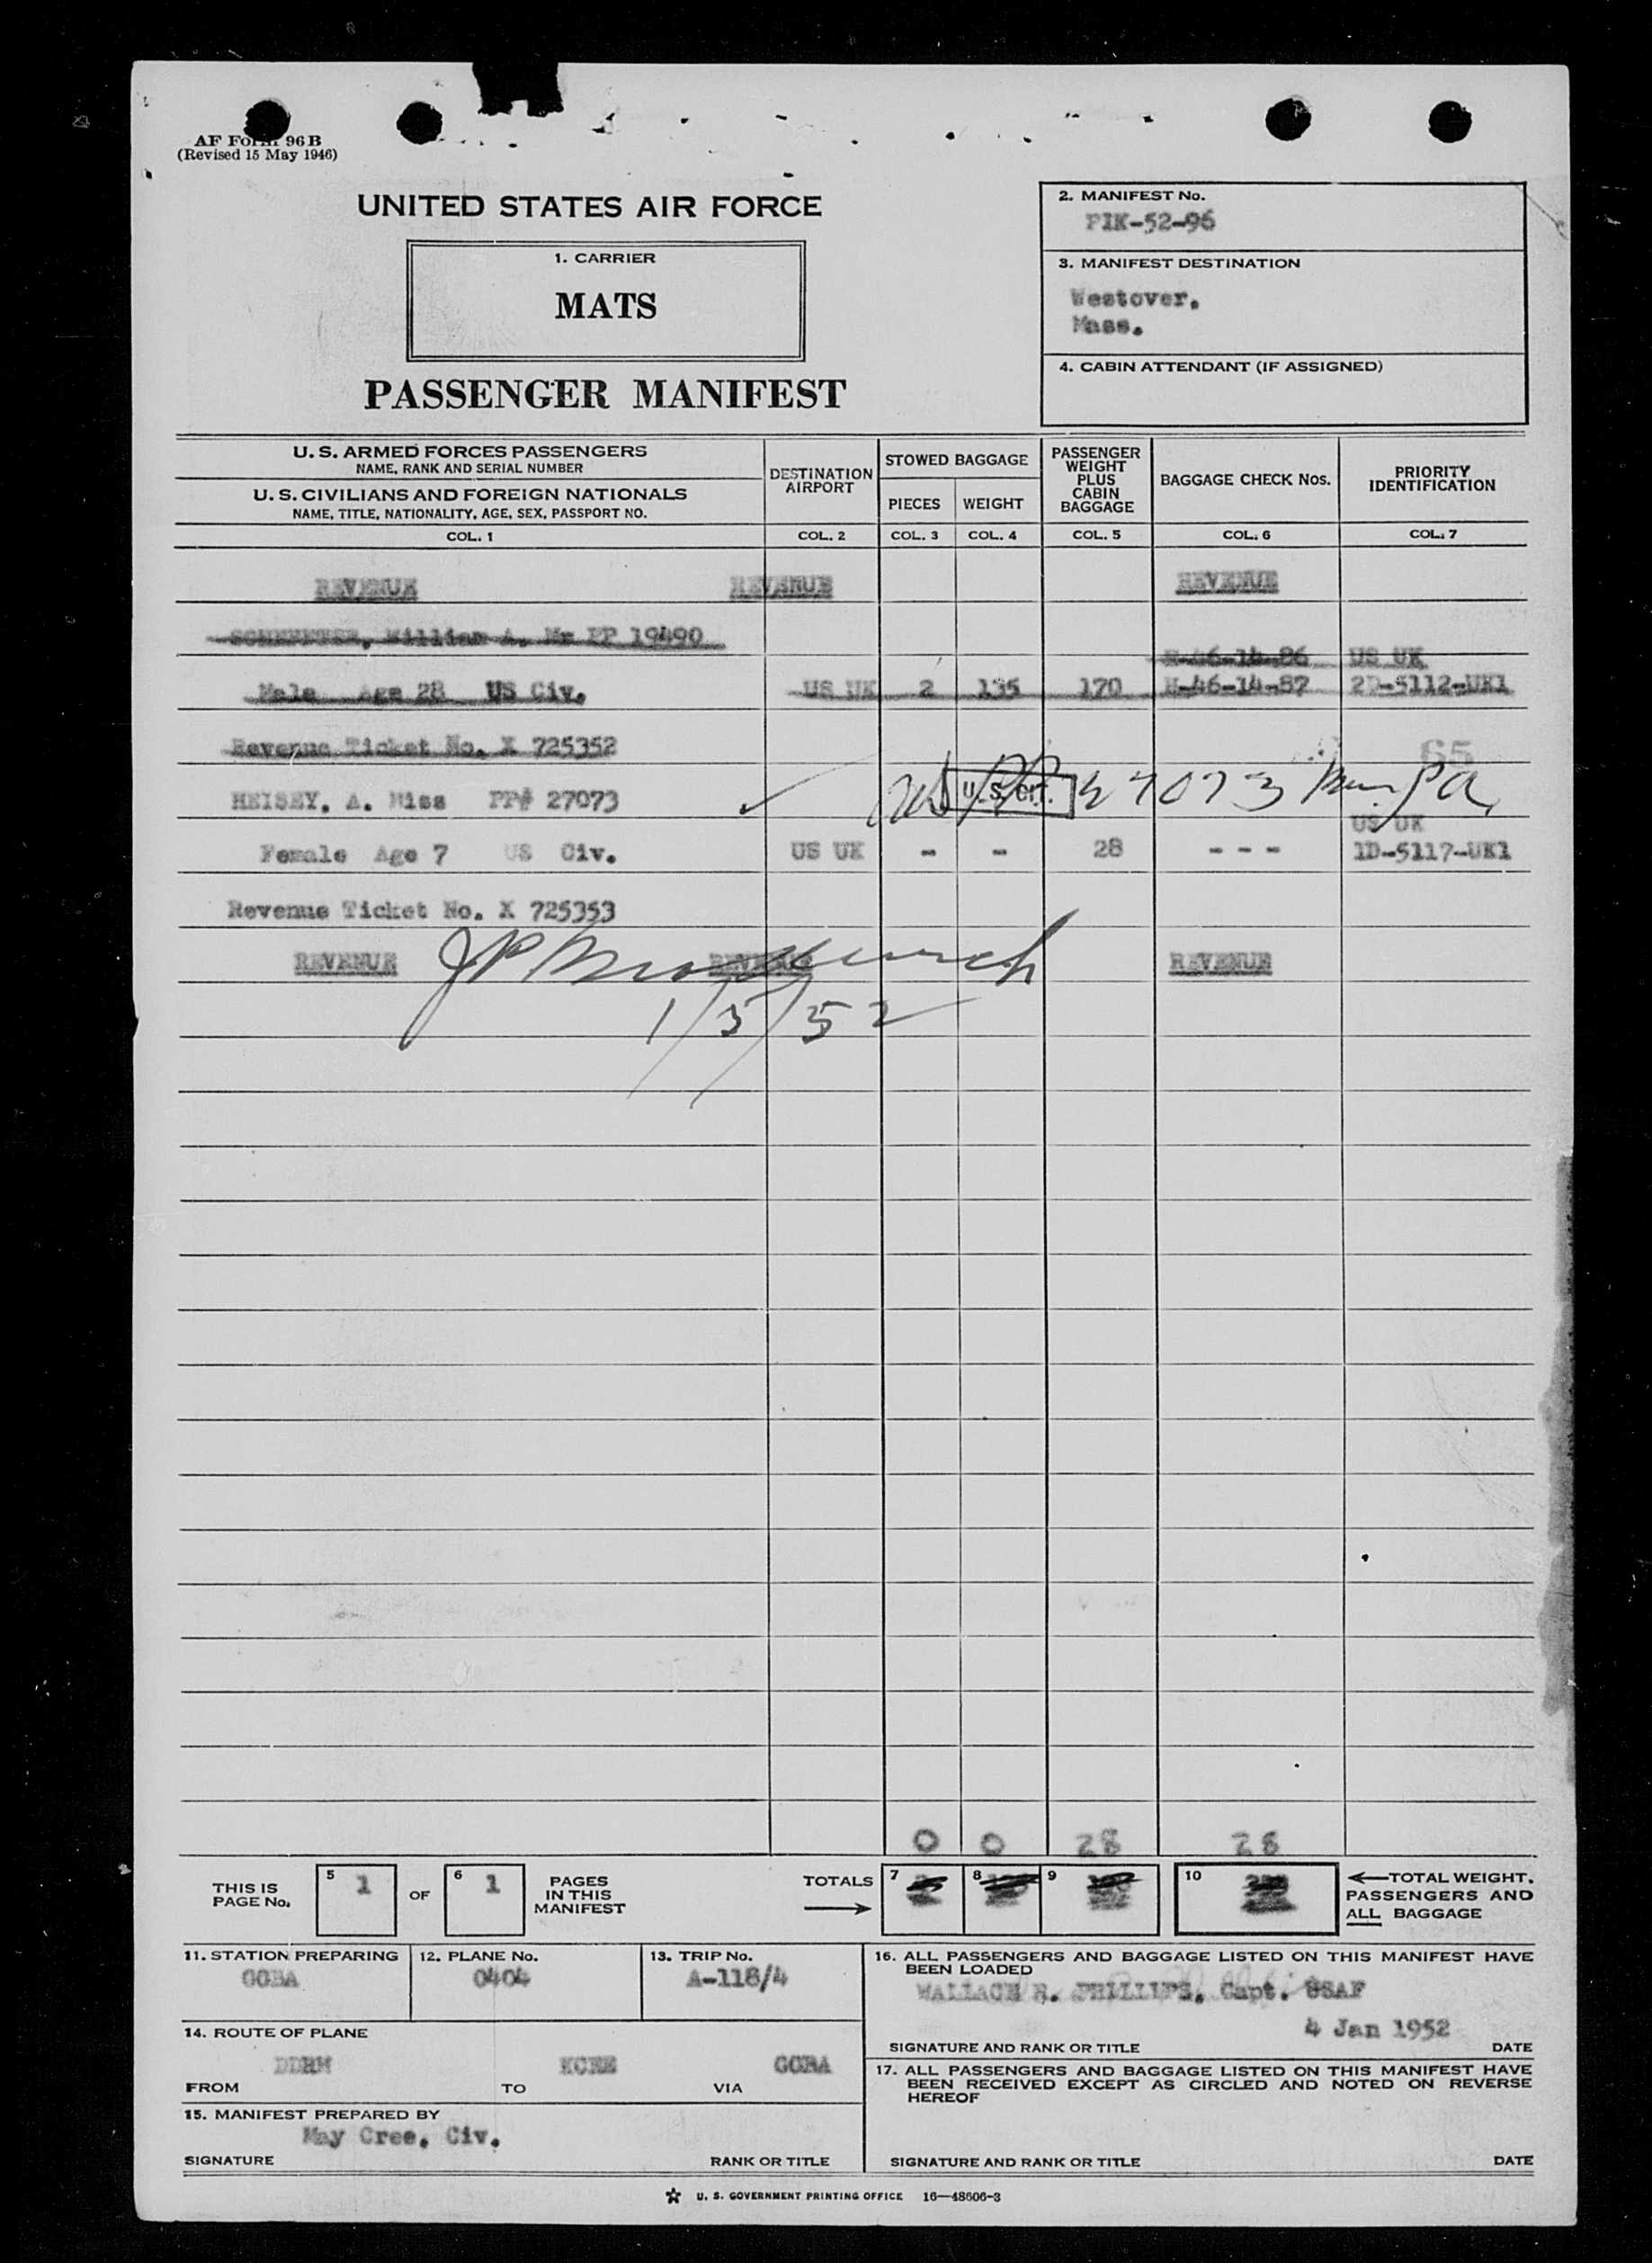 AF Form 96B
(Revised 15 May 1946)
UNITED STATES AIR FORCE
1. CARRIER
MATS
PASSENGER MANIFEST
2. MANIFEST No.
PIK-52-96
3. MANIFEST DESTINATION
Westover,
Mass.
4. CABIN ATTENDANT (IF ASSIGNED)
U. S. ARMED FORCES PASSENGERS
NAME, RANK AND SERIAL NUMBER
U. S. CIVILIANS AND FOREIGN NATIONALS
NAME, TITLE, NATIONALITY, AGE, SEX, PASSPORT NO.
DESTINATION
AIRPORT
STOWED BAGGAGE
PIECES WEIGHT
PASSENGER
WEIGHT
PLUS
CABIN
BAGGAGE
BAGGAGE CHECK Nos.
PRIORITY
IDENTIFICATION
COL. 1 COL. 2 COL. 3 COL. 4 COL. 5 COL. 6 COL. 7
REVENUE REVENUE REVENUE
William A. Mr PP 19490
M-46-14-86 US UK
Male Age 28 US Civ. US UK 2 135 170 M-46-14-87 2D-5112-UK1
Revenue Ticket No. X 725352
65
HEISEY, A. Miss PP# 27073 U. S. CIT. 27073
US UK
Female Age 7 US Civ. US UK - - 28 - - - 1D-5117-UK1
Revenue Ticket No. X 725353
REVENUE REVENUE REVENUE
1/5/52
0 0 28 28
THIS IS
PAGE No.
5 1 OF 6 1
PAGES
IN THIS
MANIFEST
TOTALS
7 8 9 10
TOTAL WEIGHT.
PASSENGERS AND
ALL BAGGAGE
11. STATION PREPARING
GOBA
12. PLANE No.
0404
13. TRIP No.
A-118/4
14. ROUTE OF PLANE
DDRM KCEE GOBA
FROM TO VIA
15. MANIFEST PREPARED BY
May Cree, Civ.
SIGNATURE RANK OR TITLE
16. ALL PASSENGERS AND BAGGAGE LISTED ON THIS MANIFEST HAVE
BEEN LOADED
WALLACE R. PHILLIPS, Capt. USAF
4 Jan 1952
SIGNATURE AND RANK OR TITLE DATE
17. ALL PASSENGERS AND BAGGAGE LISTED ON THIS MANIFEST HAVE
BEEN RECEIVED EXCEPT AS CIRCLED AND NOTED ON REVERSE
HEREOF
SIGNATURE AND RANK OR TITLE DATE
U. S. GOVERNMENT PRINTING OFFICE 16—48606-3